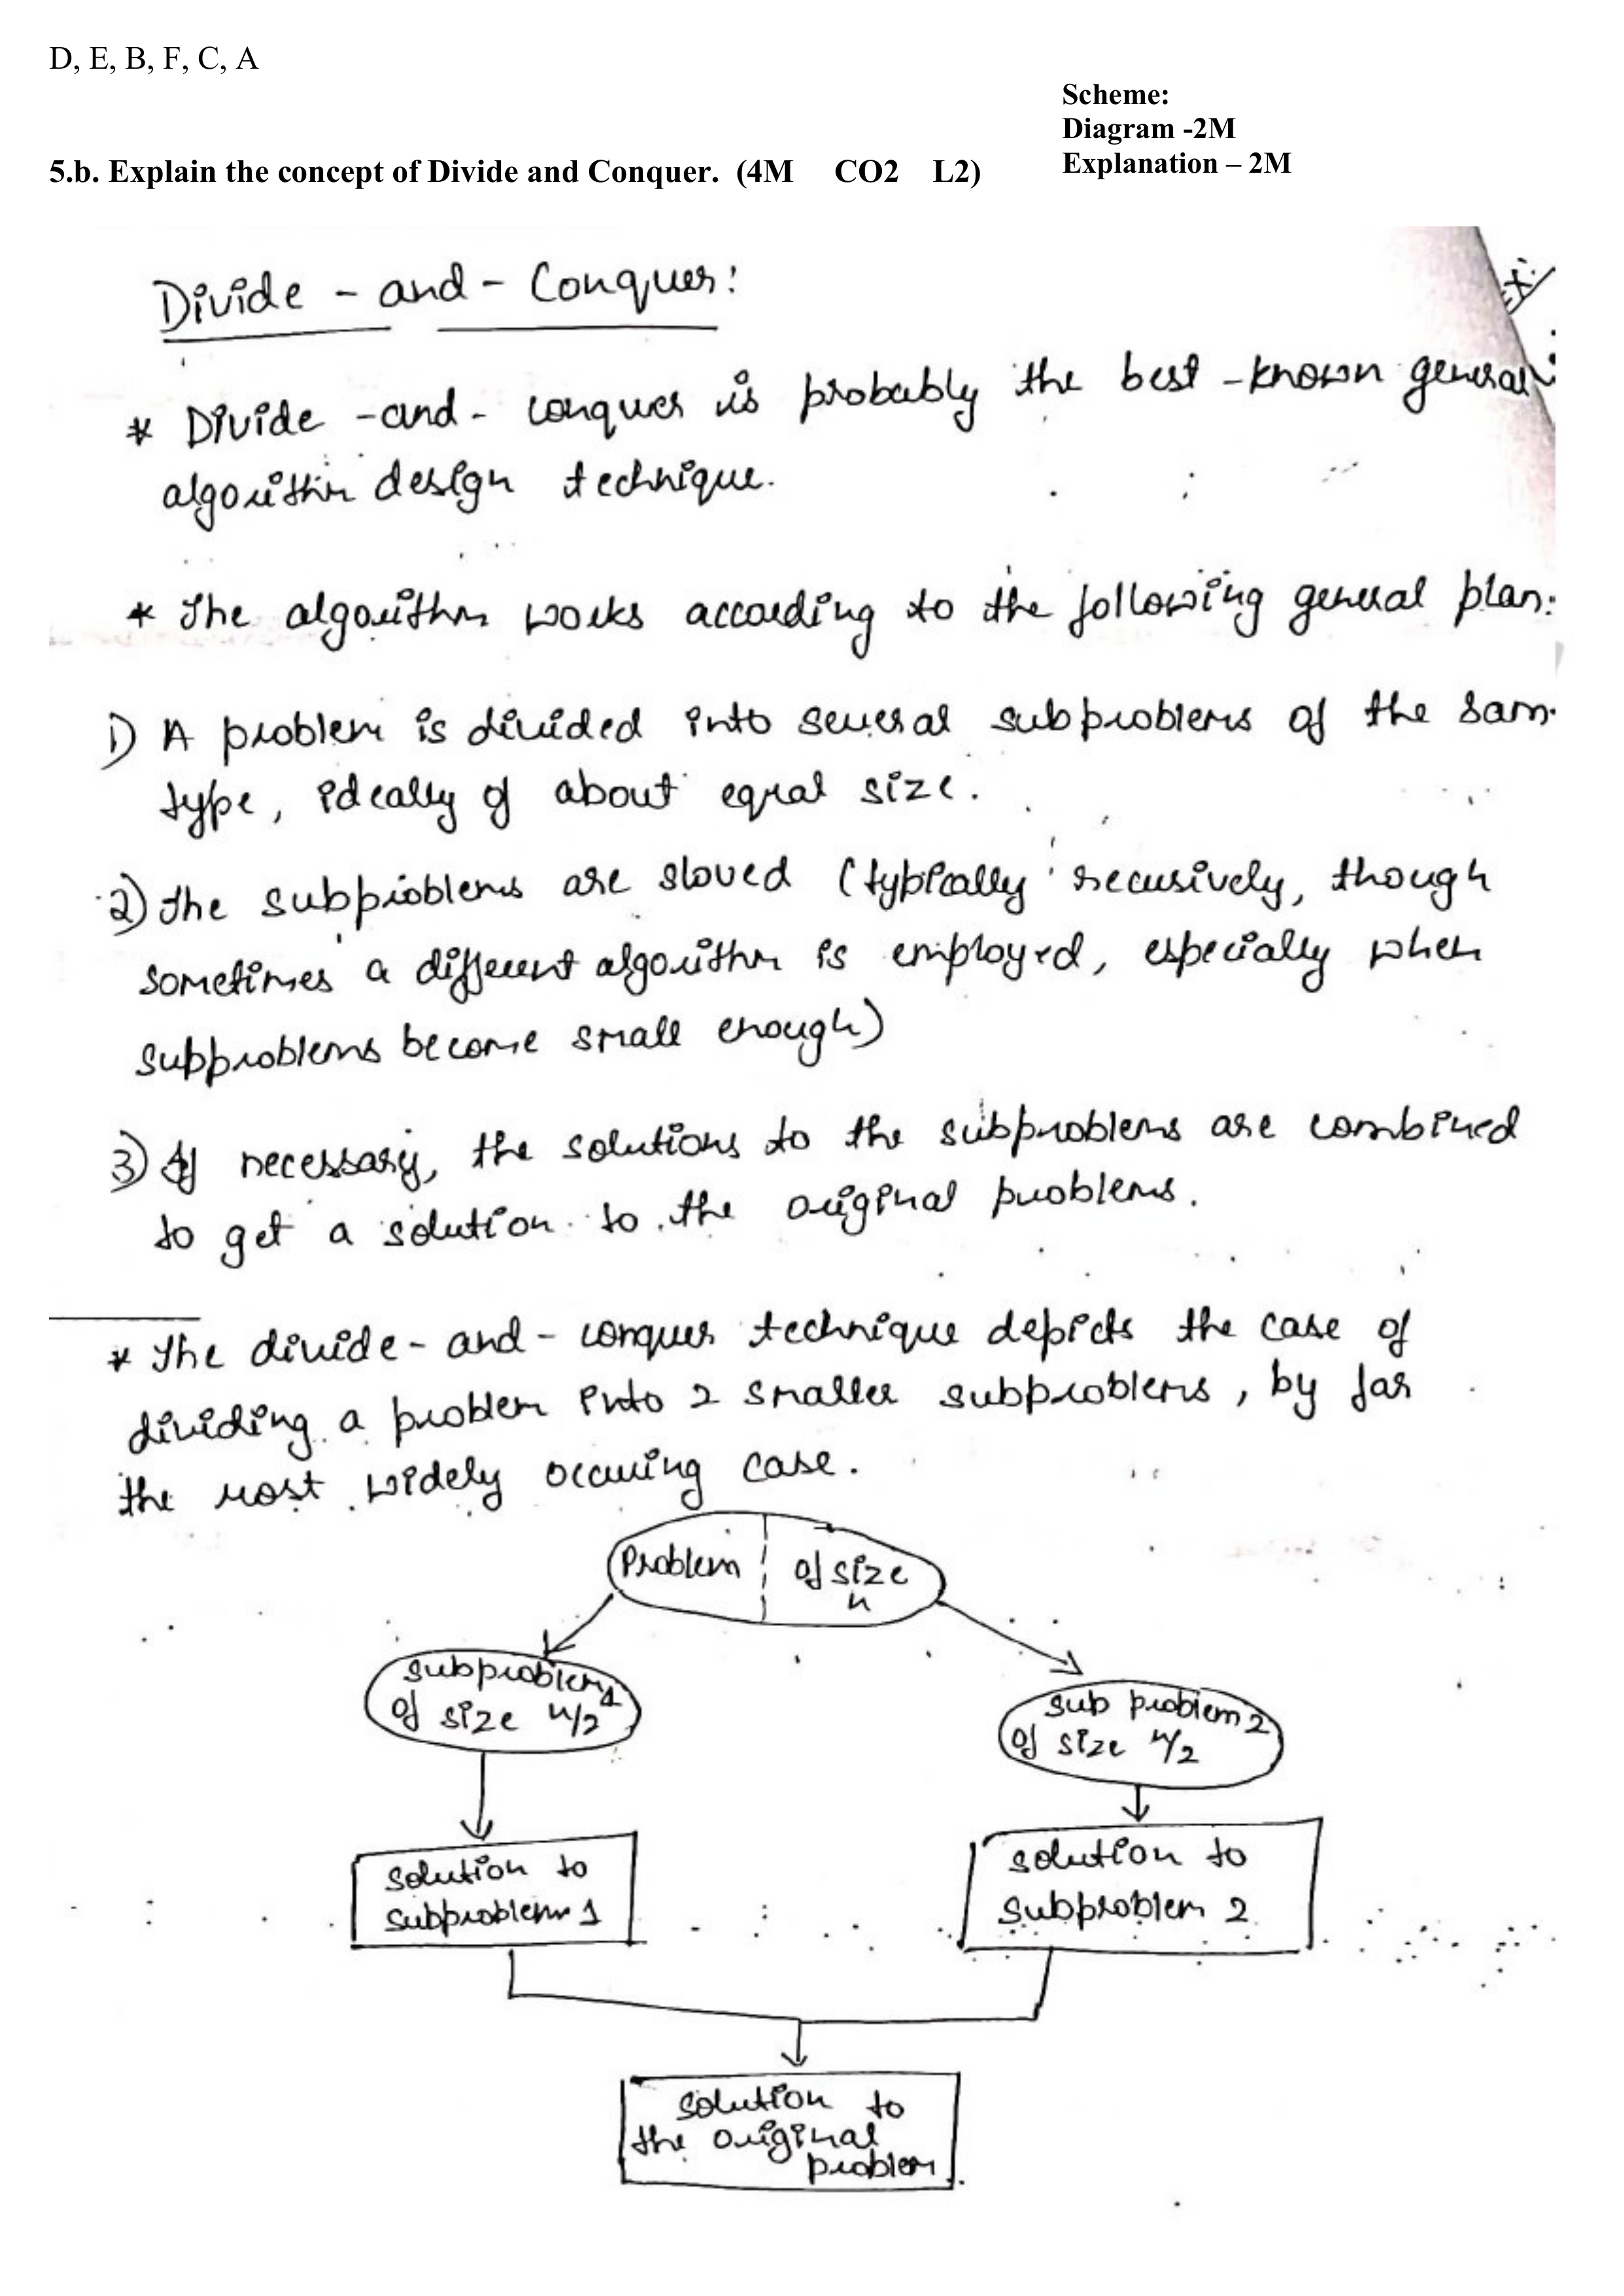 D, E, B, F, C, A
Scheme:
Diagram -2M
Explanation – 2M
5.b. Explain the concept of Divide and Conquer. (4M CO2 L2)
Divide - and - Conquer:
* Divide -and- conquer is probably the best -known general
algorithm design technique.
* The algorithm works according to the following general plan:
1) A problem is divided into several subproblems of the sam
type, ideally of about equal size.
2) the subproblems are sloved (typically recusively, though
sometimes a different algorithm is employed, especially when
subproblems become small enough)
3) If necessary, the solutions to the subproblems are combined
to get a solution to the original problems.
* The divide - and - conquer technique depicts the case of
dividing a problem into 2 smaller subproblems, by far
the most widely occuring case.
Problem of size
n
subproblem 1
of size n/2
sub problem 2
of size n/2
solution to
subproblem 1
solution to
subproblem 2
solution to
the original
problem.